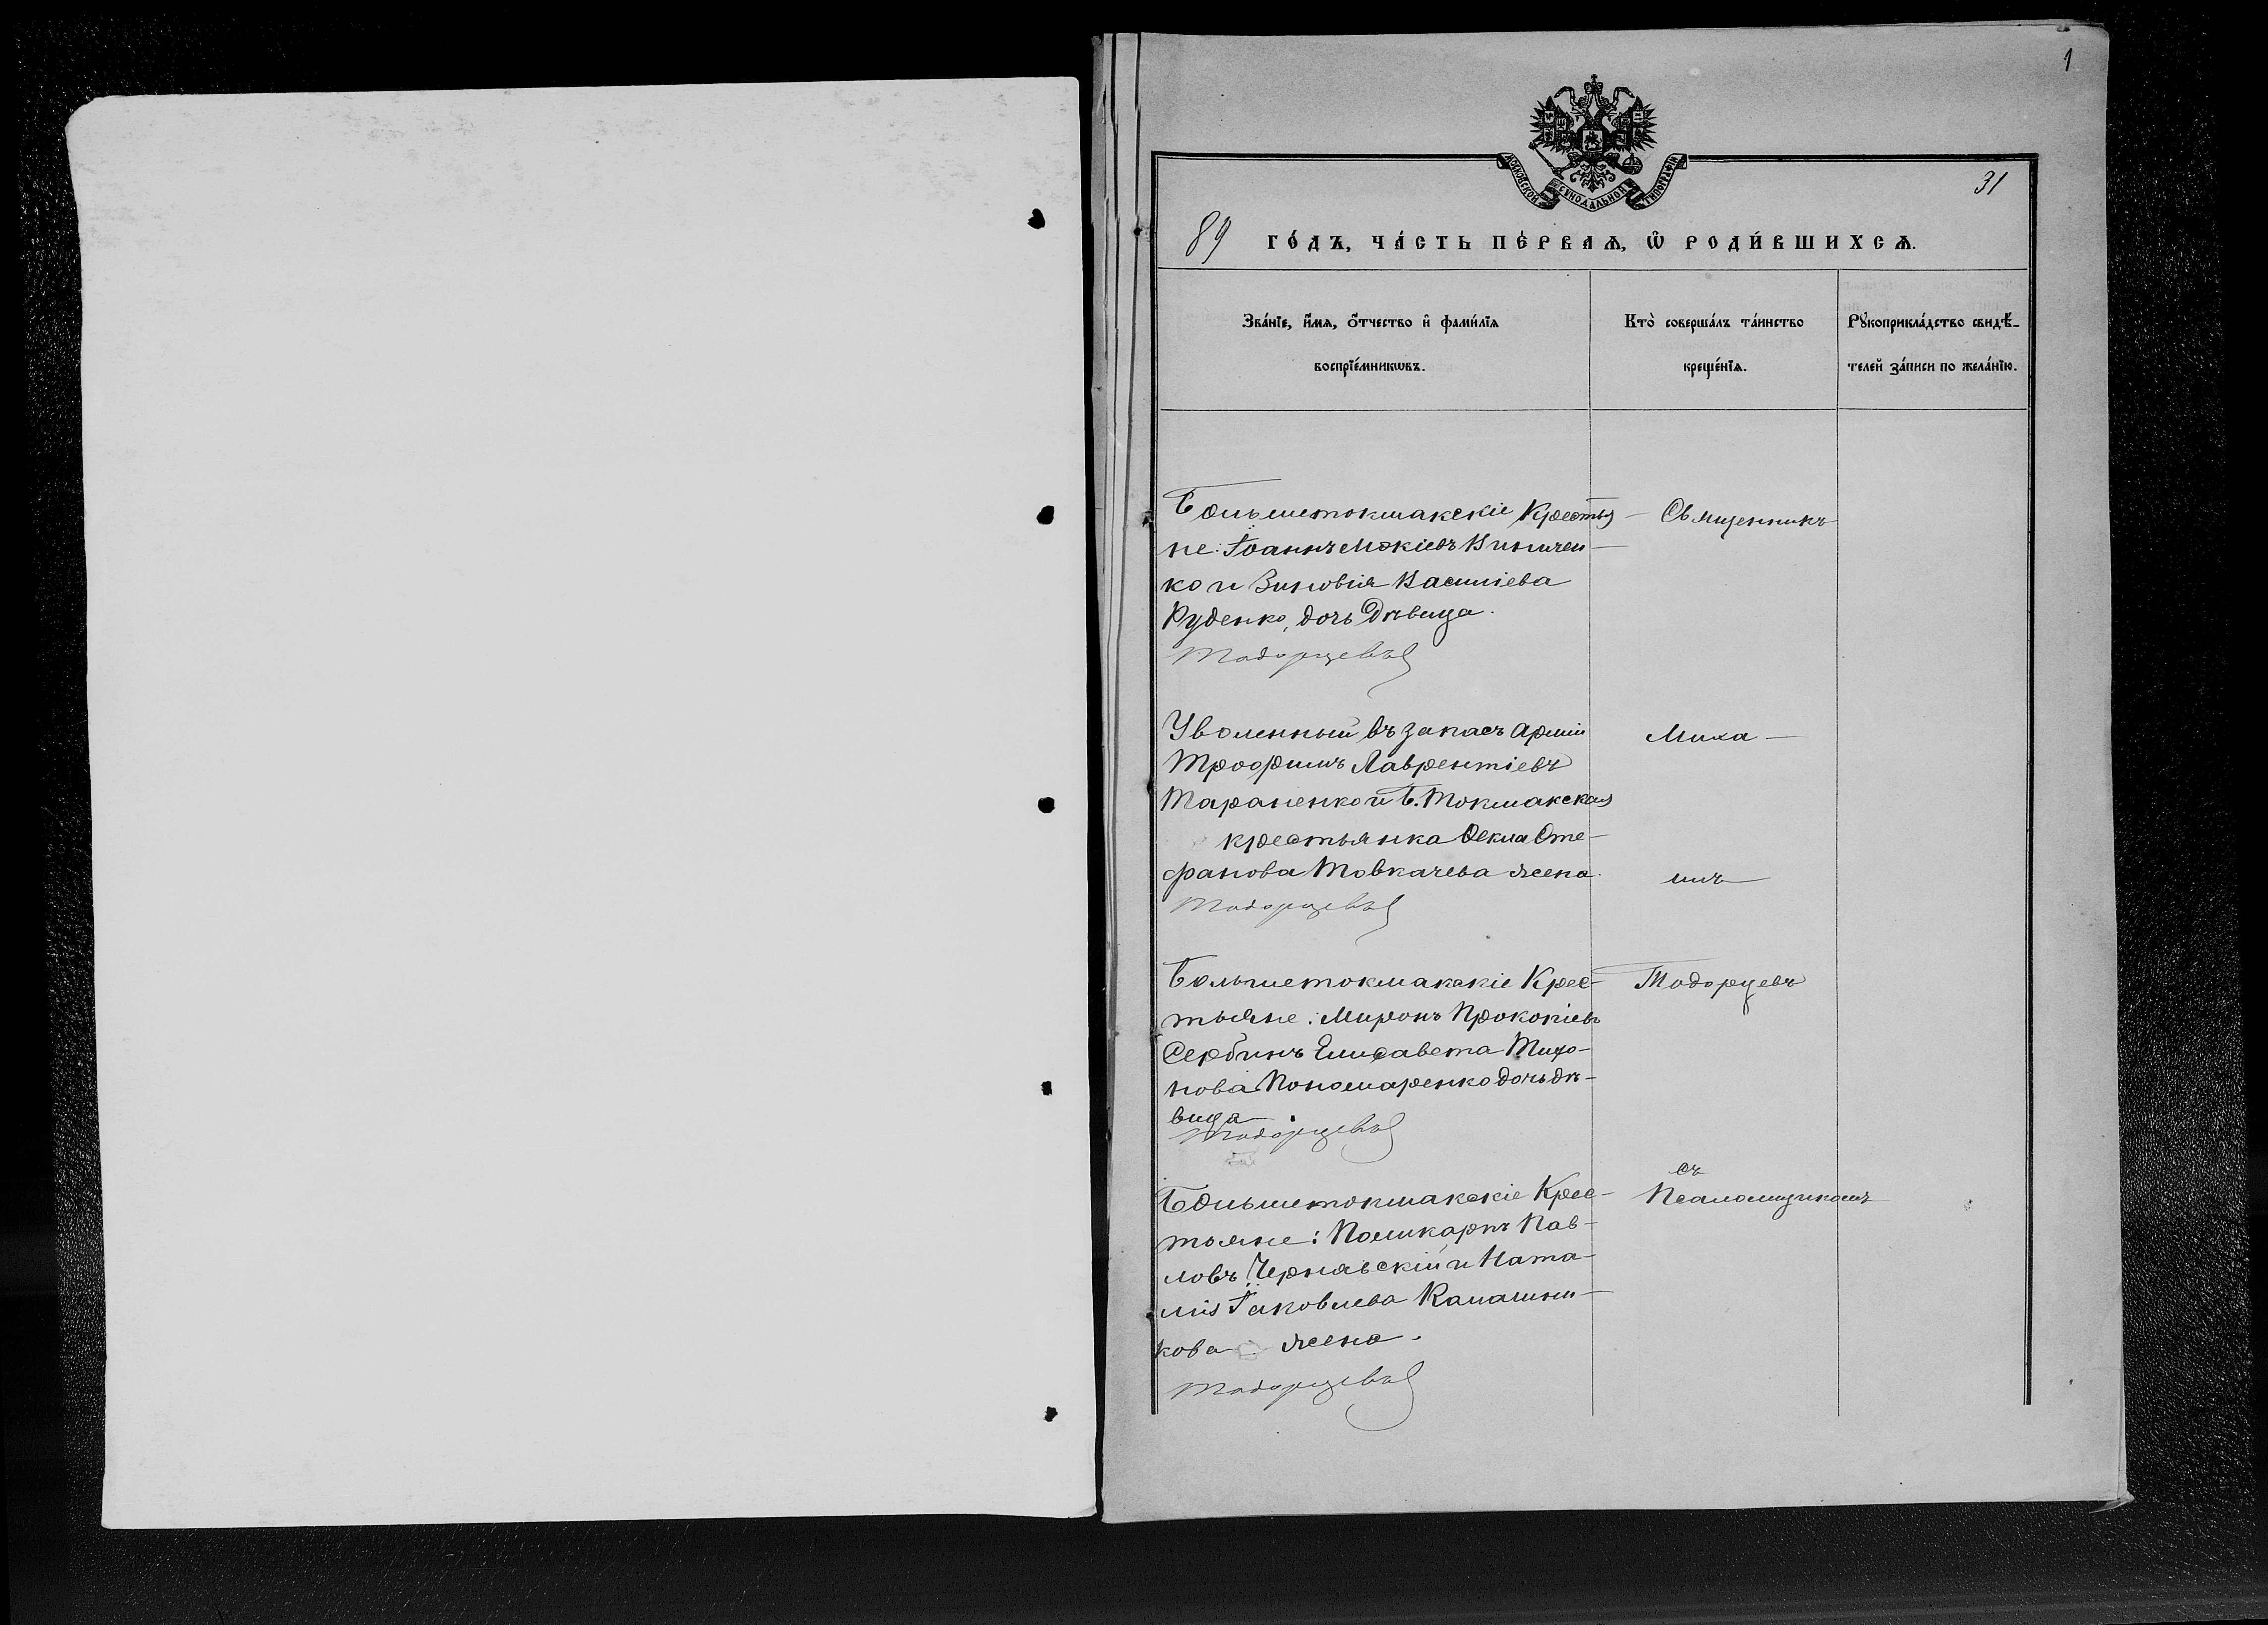 1
МОСКОВСКОЙ СѴНОДАЛЬНОЙ ТИПОГРАФІИ
31
89 го́дъ, ча́сть пе́рваѧ, ѽ роди́вшихсѧ.
Зва́нїе, и҆́мѧ, ѻ҆́тчество и҆ фами́лїѧ
воспрїе́мникѡвъ.
Кто̀ соверша́лъ та́инство
креще́нїѧ.
Рꙋкоприкла́дство свидѣ́-
телей за́писи по жела́нїю.
Большетокмакскіе Крестья-
не: Іоаннъ Мокіевъ Киричен-
ко и Зиновія Василіева
Руденко, дочь Дѣвица.
Тодорцевъ
Уволенный въ запасъ Арміи
Трофимъ Лаврентіевъ
Тараненко и Б. Токмакская
крестьянка Ѳекла Сте-
фанова Товкачева жена.
Тодорцевъ
Большетокмакскіе Крес-
тьяне: Миронъ Прокопіевъ
Сербинъ Елисавета Тихо-
нова Пономаренко дочь дѣ-
вица
Тодорцевъ
Большетокмакскіе Крес-
тьяне: Поликарпъ Пав-
ловъ Чернявскій и Ната-
лія Іаковлева Калашни-
кова жена.
Тодорцевъ
Священникъ
Миха-
илъ
Тодорцевъ
съ
Псаломщикомъ